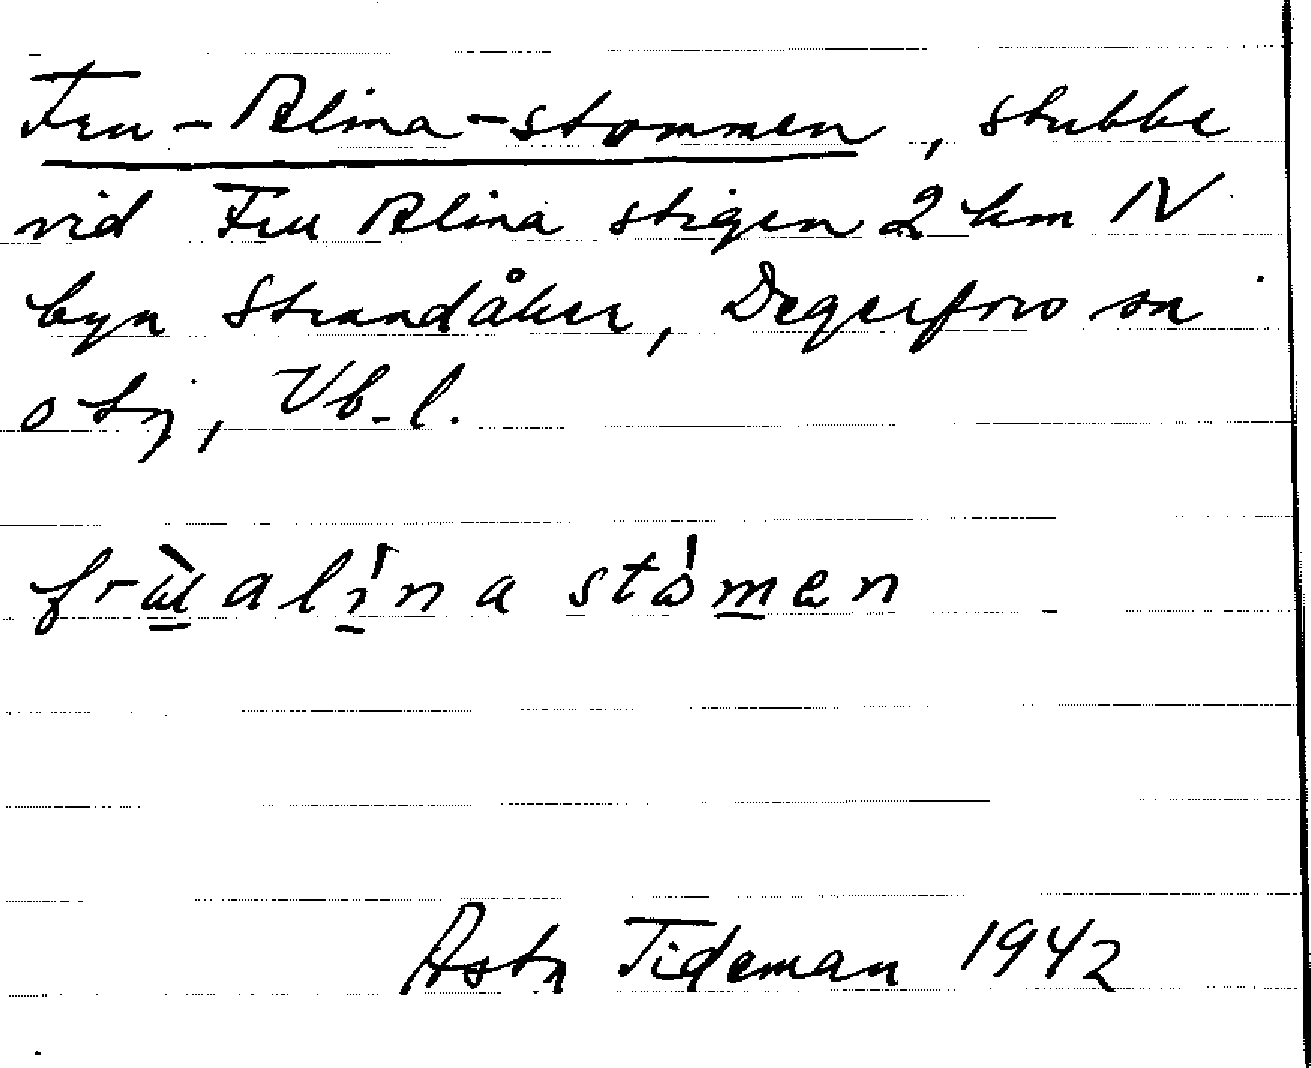 Fru-Alina-stommen, stubbe
vid Fru Alina stigen 2 km N
byn Strandåker, Degerfors sn
o tj, Vb-l.
frùalína stómen
Asta Tideman 1942